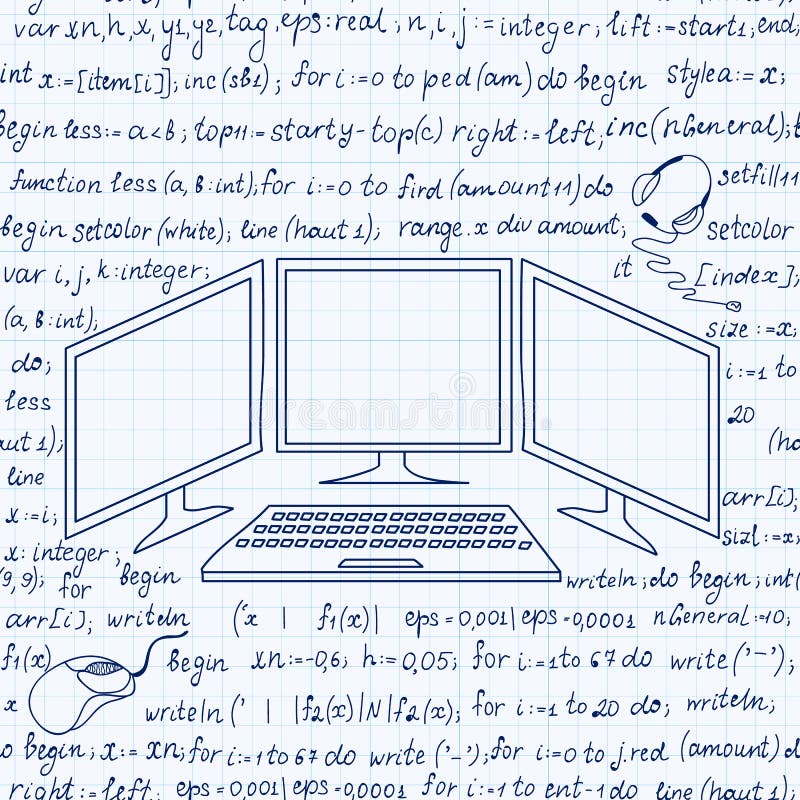 var xn, h, x, y1, y2, tag, eps:real; n, i, j:= integer; lift:=start1; end;
int x:=[item[i]]; inc(sb1); for i:=0 to ped(am) do begin stylea:=x;
begin less:=a<b; top11:=starty-top(c) right:=left; inc(nGeneral);
function less (a, b:int); for i:=0 to find (amount11) do setfill11
begin setcolor (white); line (haut 1); range.x div amount; setcolor
var i, j, k:integer; it [index];
(a, b:int); size :=x;
do; i:=1 to
less 20
aut 1); (ha
line arr[i];
x:=i; sizl:=x;
x: integer;
(9,9); for begin writeln; do begin; int(
arr[i]; writeln ('x | f1(x)| eps=0,001|eps=0,0001 nGeneral:=10;
f1(x) begin xn:=-0,6; h:=0,05; for i:=1 to 67 do write ('-');
x writeln (' | |f2(x)|N|f2(x); for i:=1 to 20 do; writeln;
do begin; x:=xn; for i:=1 to 67 do write ('-'); for i:=0 to j.red (amount) d
right:=left. eps=0,001|eps=0,0001 for i:=1 to ent-1 do line (haut 1);
dreamstime